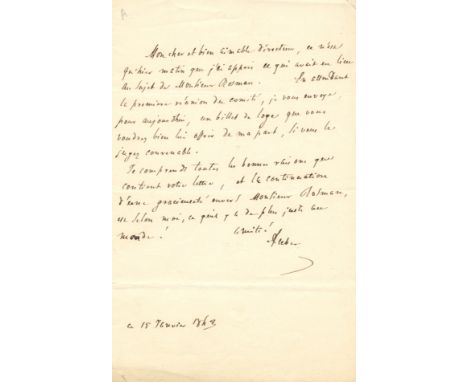 Mon cher et bien aimable directeur, ce n'est
qu'hier matin que j'ai appris ce qui avait eu lieu
au sujet de Monsieur Bosman. En attendant
la première réunion du comité, je vous envoye,
pour aujourd'hui, un billet de loge que vous
voudrez bien lui offrir de ma part, si vous le
jugez convenable.
Je comprends toutes les bonnes raisons que
contient votre lettre, et la continuation
d'une gracieuseté envers Monsieur Bosman,
est selon moi, ce qu'il y a de plus juste au
monde!
amitié!
Auber
ce 15 Janvier